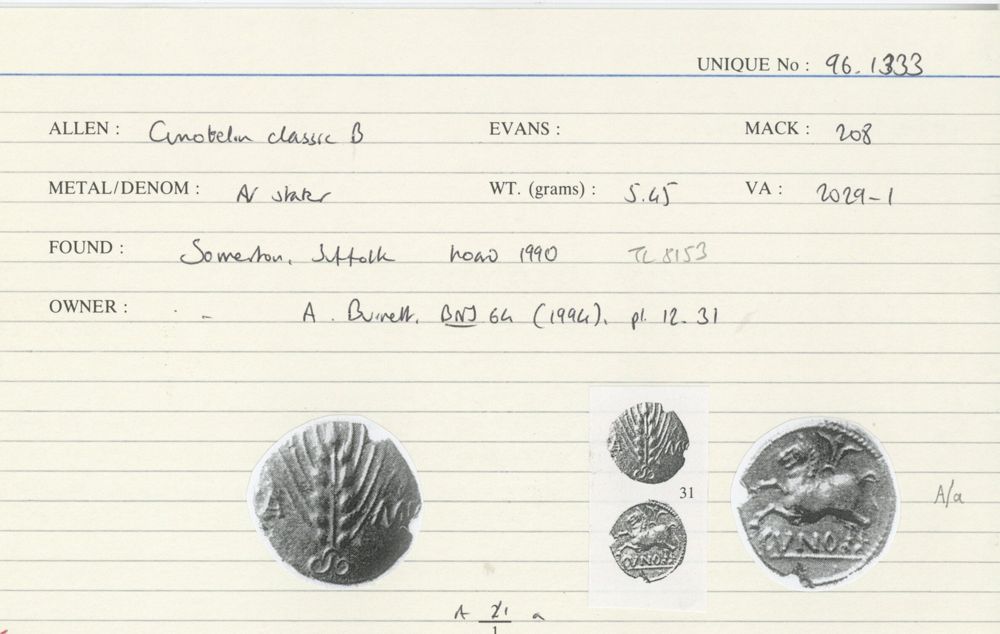 UNIQUE No : 96.1333
ALLEN : Cunobelin classic B EVANS : MACK : 208
METAL/DENOM : AV stater WT. (grams) : 5.45 VA : 2029-1
FOUND : Somerton, Suffolk hoard 1990 TL 8153
OWNER : - A. Burnett, BNJ 64 (1994), pl. 12.31
31
A/a
CVNO
A 21 a
1